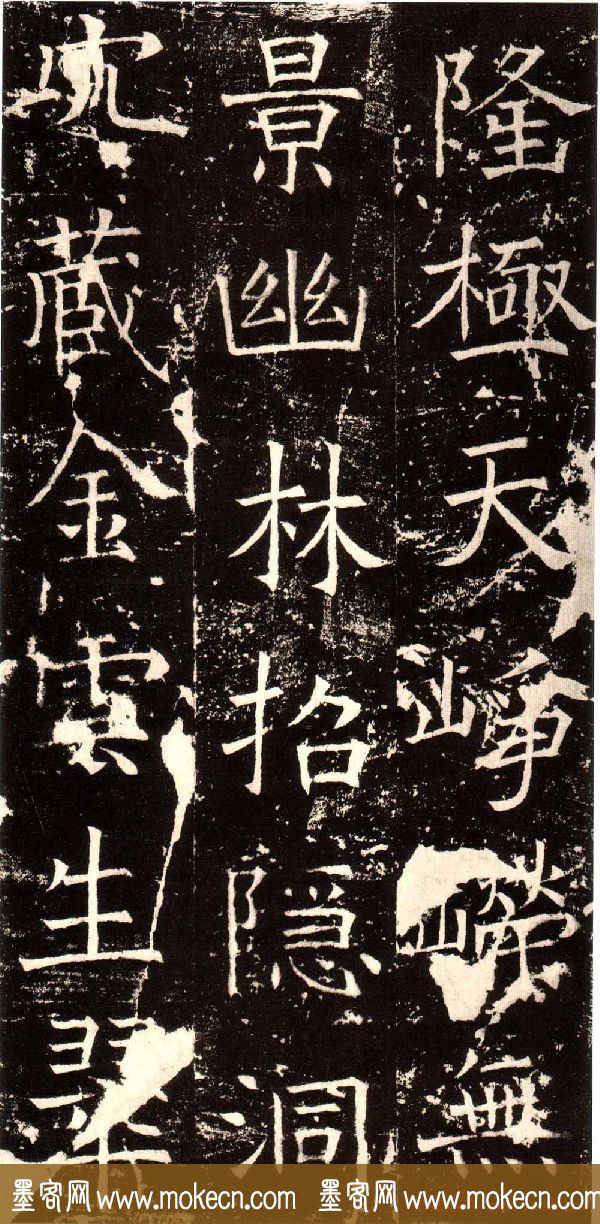 隆極天峥嶸無
景幽林招隐洞
穴藏金雲生翠
墨客网 www.mokecn.com 墨客网 www.mokecn.com